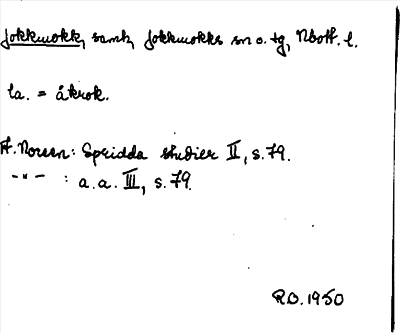 Jokkmokk, samh, Jokkmokks sn o. tg, Nbott. l.
la. = åkrok.
A. Noreen: Spridda studier II, s. 79.
-"- : a.a. III, s. 79.
R.O. 1950